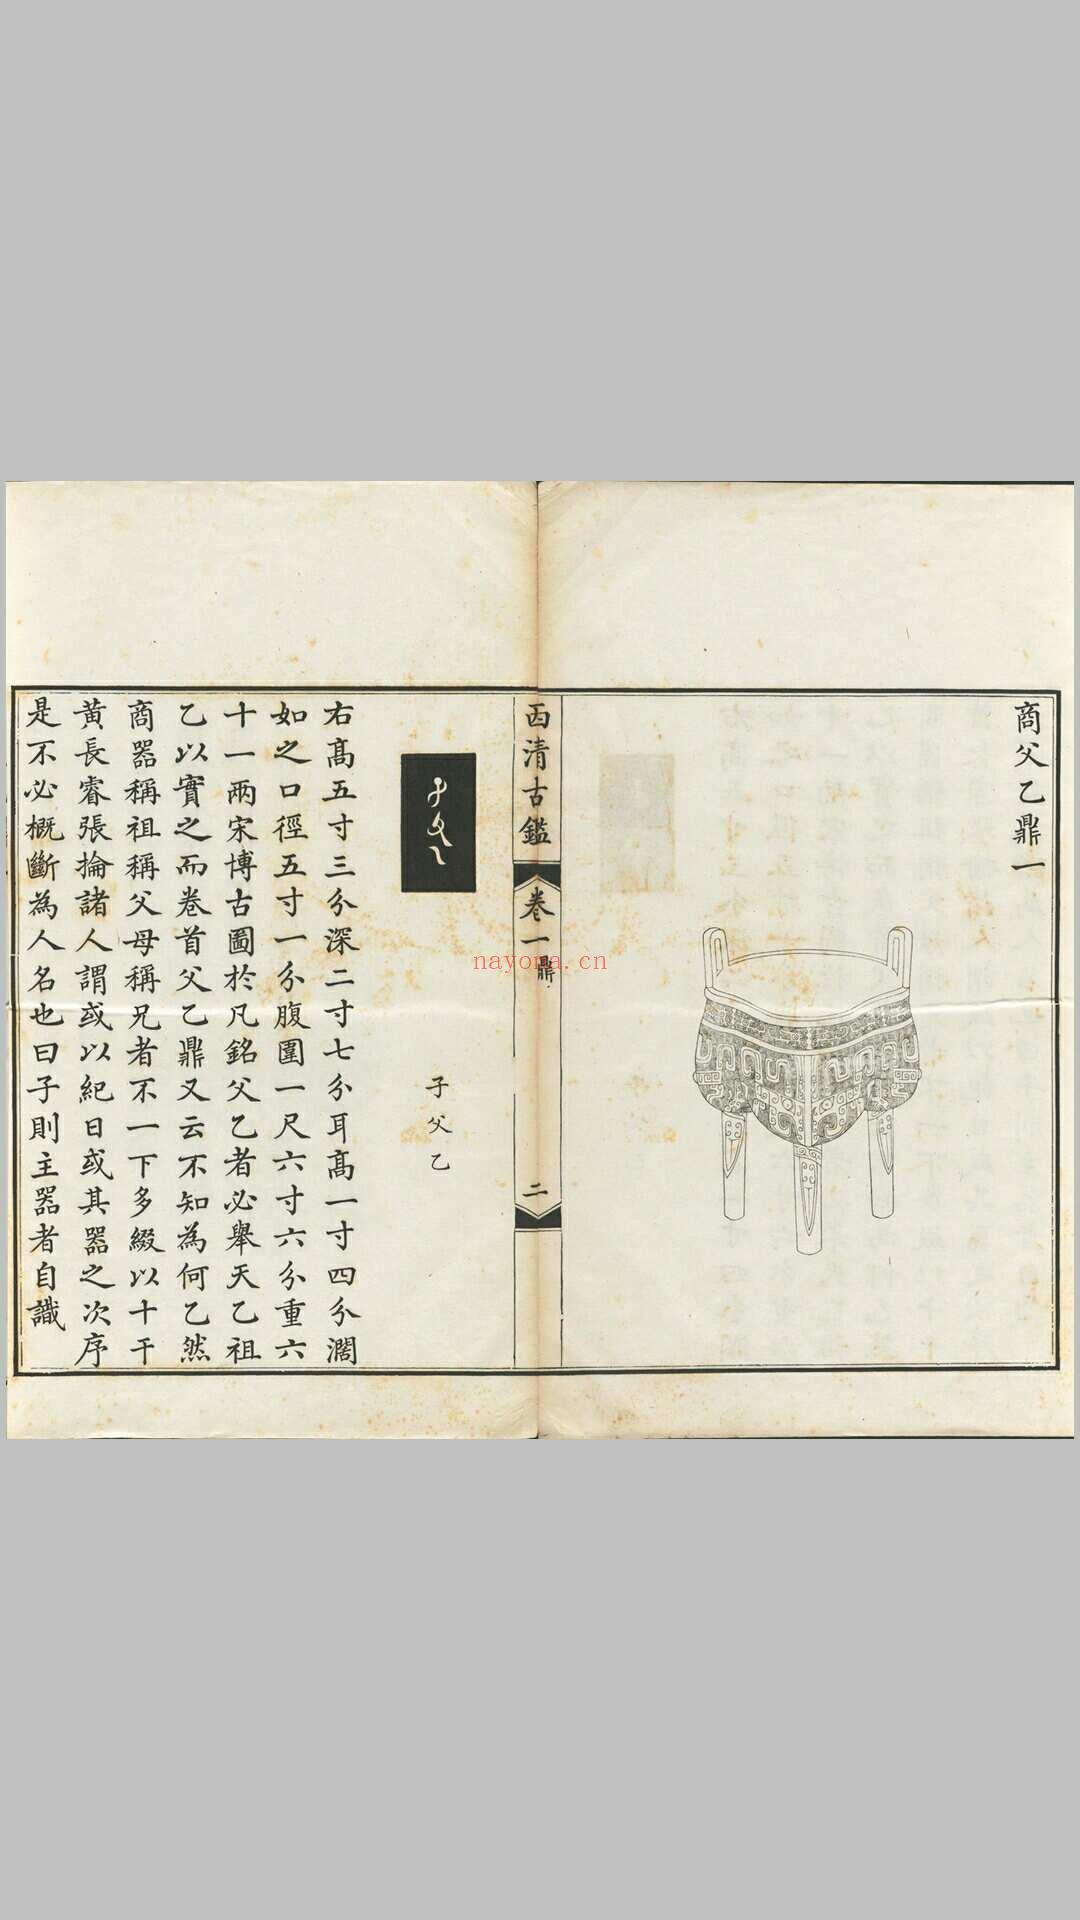 商父乙鼎一
西清古鑑
卷一鼎
二
子父乙
右髙五寸三分深二寸七分耳髙一寸四分濶
如之口徑五寸一分腹圍一尺六寸六分重六
十一兩宋博古圖於凡銘父乙者必舉天乙祖
乙以實之而卷首父乙鼎又云不知為何乙然
商器稱祖稱父母稱兄者不一下多綴以十干
黃長睿張掄諸人謂或以紀日或其器之次序
是不必概斷為人名也曰子則主器者自識
nayona.cn